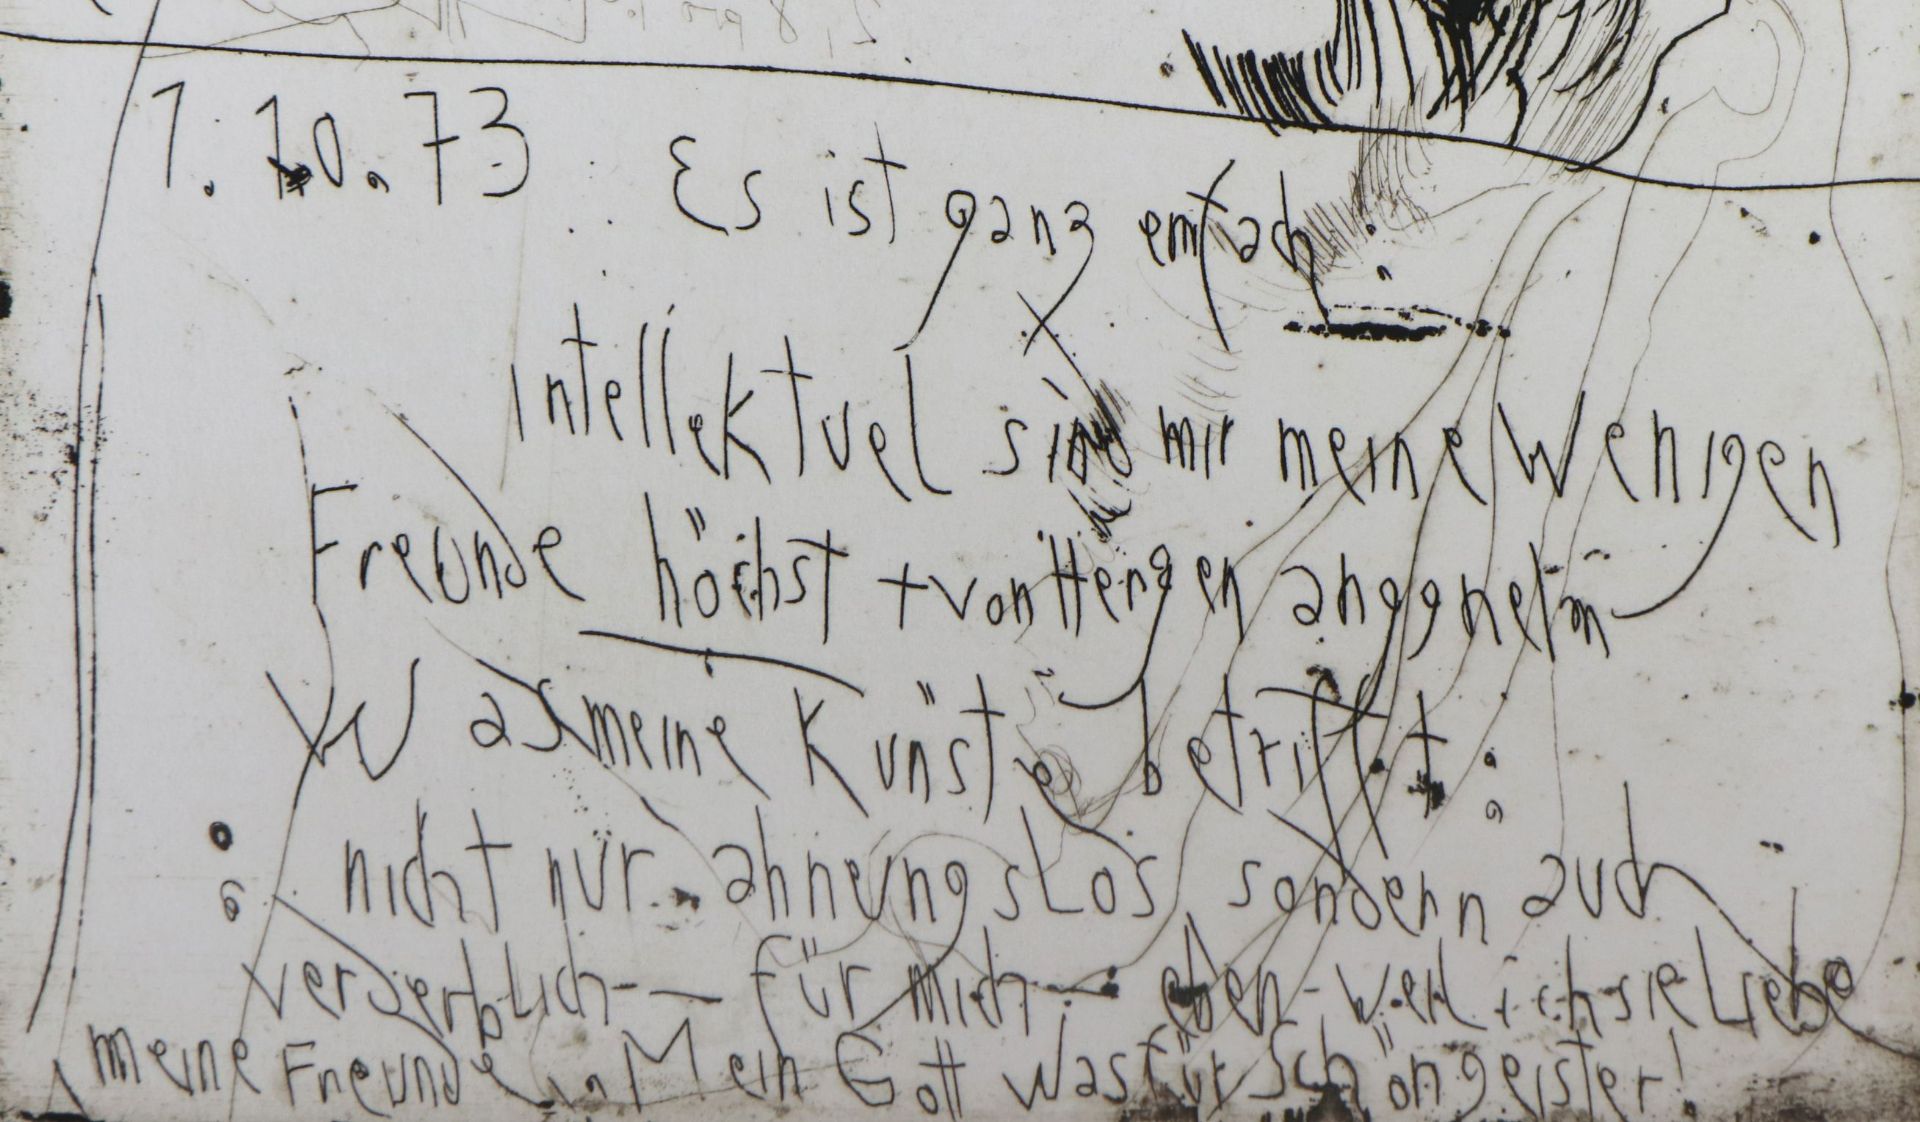 1. 10. 73 Es ist ganz einfach :
intellektuel sind mir meine wenigen
Freunde höchst + von Herzen angenehm
Was meine Kunst betrifft :
nicht nur ahnungsLos sondern auch
verderblich — für mich — eben - weil ich sie Liebe
meine Freunde Mein Gott was für Schöngeister!